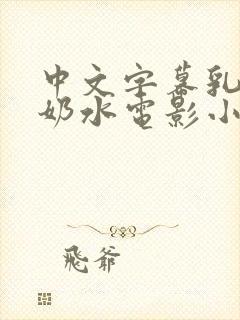 中文字幕乳
奶水电影小
飛爷